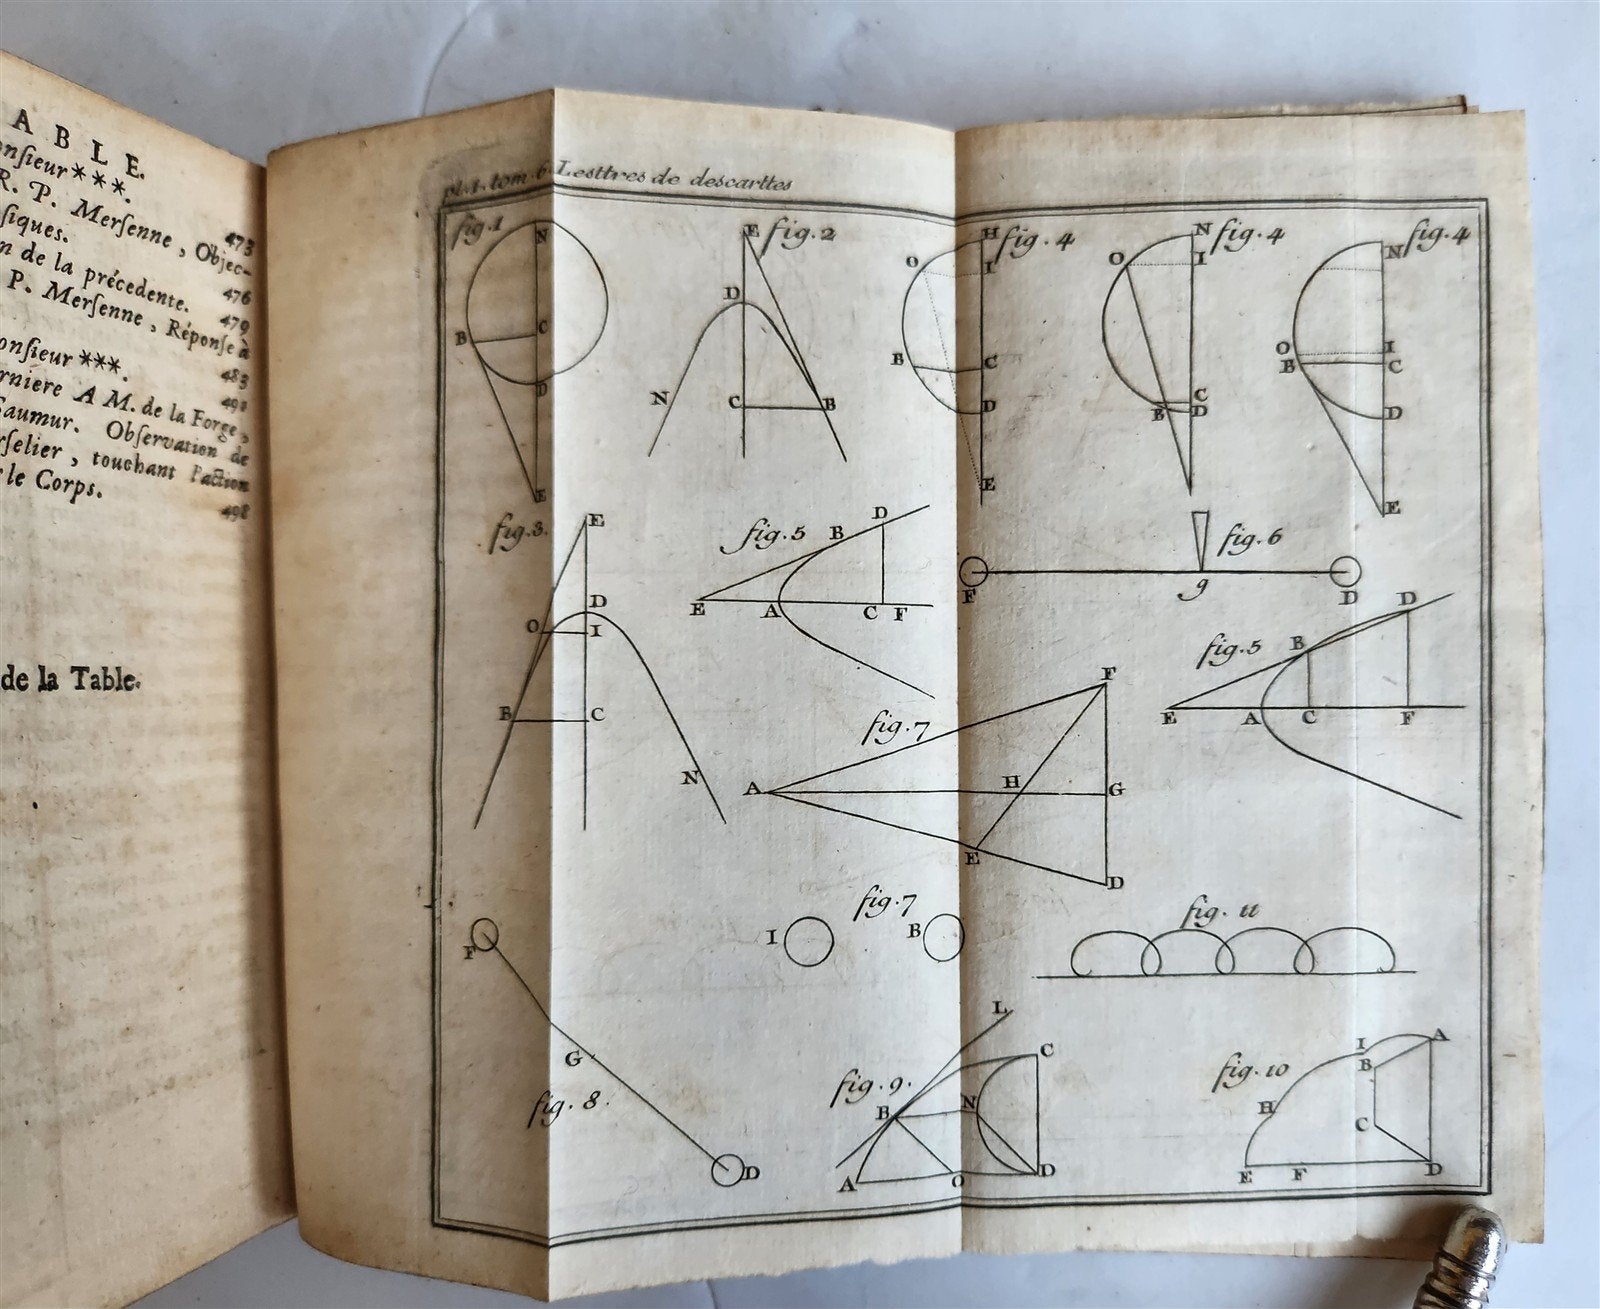 ABLE.
onſieur ***. 473
R. P. Merſenne, Objec-
ſiques. 476
n de la précedente. 479
P. Merſenne, Réponſe à
483
onſieur ***. 491
rniere A M. de la Forge,
Saumur. Obſervation de
rſelier, touchant l'action
le Corps. 498
de la Table.
pl. 1. tom. 6. Lesttres de descarttes
fig. 1
N
B
C
D
E
fig. 2
E
D
N
C
B
fig. 4
H
O
I
B
C
D
E
fig. 4
N
O
I
C
B
D
fig. 4
N
O
I
B
C
D
E
fig. 3.
E
D
O
I
B
C
N
fig. 5
B
D
E
A
C
F
fig. 6
F
g
D
fig. 5
D
B
E
A
C
F
fig. 7
F
A
H
G
E
D
fig. 7
I
B
fig. 11
F
G
fig. 8.
D
fig. 9.
L
C
B
N
A
O
D
fig. 10
I
A
B
H
C
E
F
D